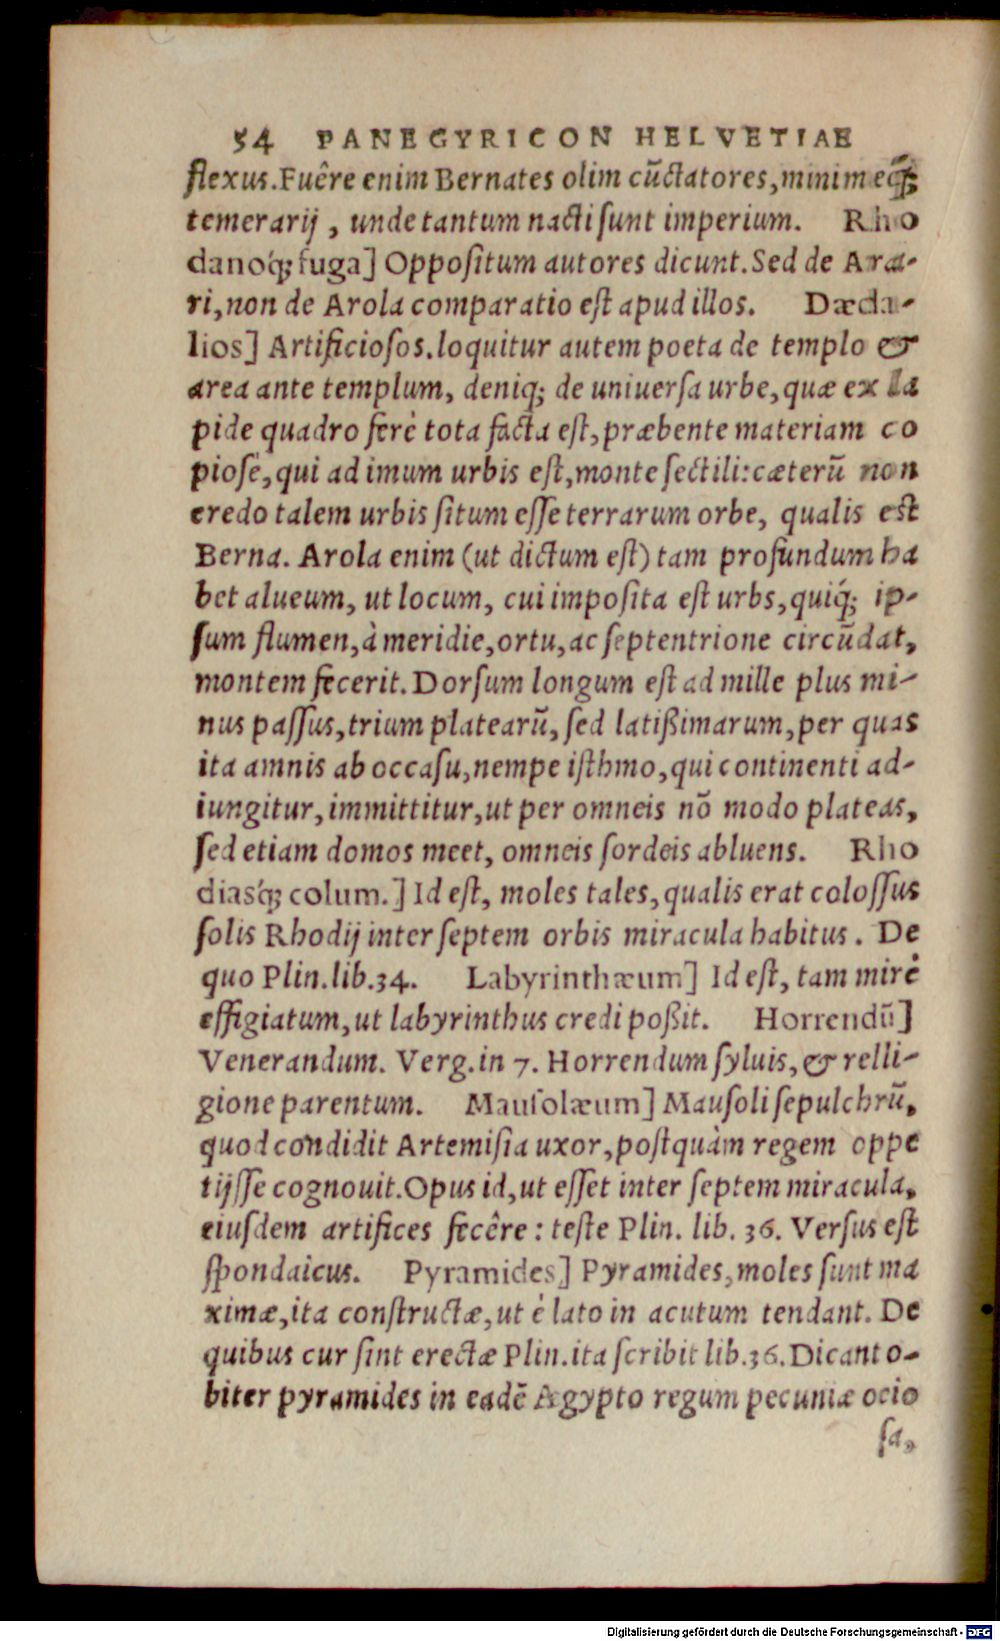 54 PANEGYRICON HELVETIAE
flexus. Fuêre enim Bernates olim cũctatores, minimeq́;
temerarij, unde tantum nacti sunt imperium. Rho
danoq́; fuga] Oppositum autores dicunt. Sed de Ara-
ri, non de Arola comparatio est apud illos. Dæda-
lios] Artificiosos. loquitur autem poeta de templo &
area ante templum, deniq; de uniuersa urbe, quæ ex la
pide quadro ferè tota facta est, præbente materiam co
piosè, qui ad imum urbis est, monte sectili: cæterũ non
credo talem urbis situm esse terrarum orbe, qualis est
Berna. Arola enim (ut dictum est) tam profundum ha
bet alueum, ut locum, cui imposita est urbs, quiq́; ip-
sum flumen, à meridie, ortu, ac septentrione circũdat,
montem fecerit. Dorsum longum est ad mille plus mi-
nus passus, trium platearũ, sed latißimarum, per quas
ita amnis ab occasu, nempe isthmo, qui continenti ad-
iungitur, immittitur, ut per omneis nõ modo plateas,
sed etiam domos meet, omneis sordeis abluens. Rho
diasq́; colum.] Id est, moles tales, qualis erat colossus
solis Rhodij inter septem orbis miracula habitus. De
quo Plin. lib. 34. Labyrinthæum] Id est, tam mirè
effigiatum, ut labyrinthus credi poßit. Horrendũ]
Venerandum. Verg. in 7. Horrendum syluis, & relli-
gione parentum. Mausolæum] Mausoli sepulchrũ,
quod condidit Artemisia uxor, postquàm regem oppe
tijsse cognouit. Opus id, ut esset inter septem miracula,
eiusdem artifices fecêre: teste Plin. lib. 36. Versus est
spondaicus. Pyramides] Pyramides, moles sunt ma
ximæ, ita constructæ, ut è lato in acutum tendant. De
quibus cur sint erectæ Plin. ita scribit lib. 36. Dicant o-
biter pyramides in eadẽ Aegypto regum pecuniæ ocio
sa,
Digitalisierung gefördert durch die Deutsche Forschungsgemeinschaft - DFG